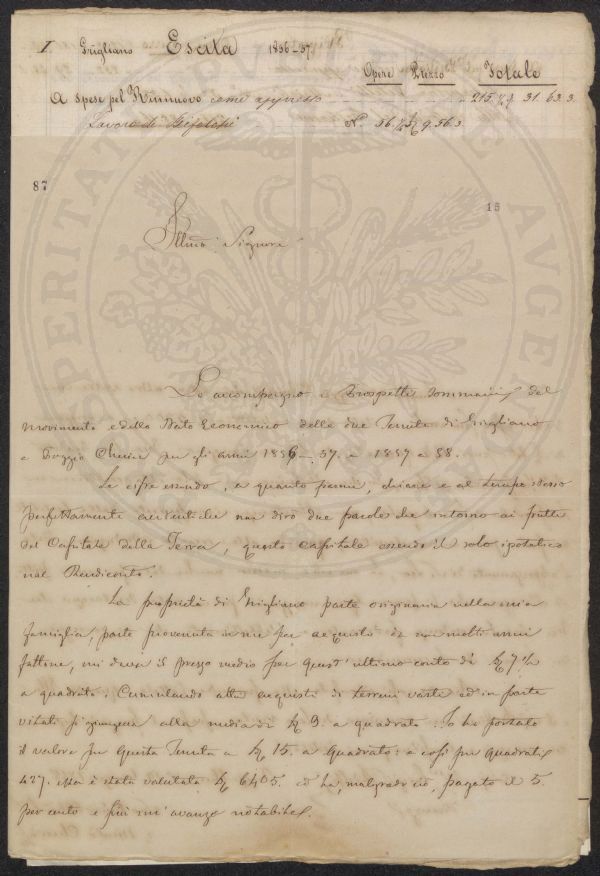 I Grigliano Escita 1856-57.
Opere Prezzo Totale
A spese pel Rinnuovo come appresso 215. ½ 31 63 3
Lavoro di Bifolchi N.º 56. ½ 9. 56 3
87
15
Illmo: Signore
Le accompagno i Prospetti Sommarij del
movimento e dello Stato Economico delle due Tenute di Grigliano
e Poggio per gli anni 1856-57 e 1857 a 58.
Le cifre essendo, a quanto parmi, chiare e al tempo stesso
perfettamente autentiche non dirò due parole che intorno ai frutti
del Capitale della Terra, questo capitale essendo il solo ipotetico
nel Rendiconto.
La proprietà di Grigliano parte originaria nella mia
famiglia, parte provenuta in me per acquisto da non molti anni
fattine, mi dava il prezzo medio per quest'ultimo conto di 7½
a quadrato. Cumulando altri acquisti di terreni vasti ed in parte
vitati si giungeva alla media di 9. a quadrato: Io ho portato
il valore per questa Tenuta a 15. a Quadrato: e così per quadrati
427. essa è stata valutata 6405. ed ha, malgrado ciò, pagato il 5.
per cento e più un'avanzo notabile.